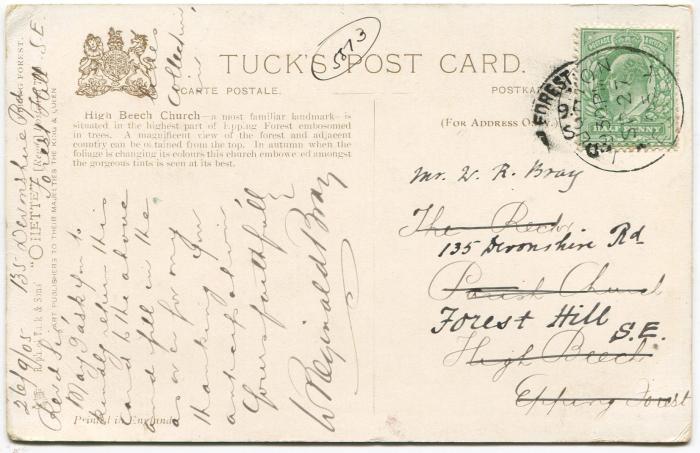 TUCK'S POST CARD.
CARTE POSTALE.
POSTKA
(For Address O
5873
High Beech Church—a most familiar landmark—is
situated in the highest part of Epping Forest embosomed
in trees. A magnificent view of the forest and adjacent
country can be obtained from the top. In autumn when the
foliage is changing its colours this church embowered amongst
the gorgeous tints is seen at its best.
HALF PENNY
FOREST
Mr. W. R. Bray
The Rector
135 Devonshire Rd
Parish Church
Forest Hill
S.E.
High Beech
Epping Forest
135 Devonshire Rd
Forest Hill S.E.
26/9/05
Revd Sir
May I ask you to
kindly return this
card to the above
and fill in the
as over for my
collection
Thanking you
in anticipation
Yours faithfully
W Reginald Bray
Raphael Tuck & Sons' "OILETTE"
ART PUBLISHERS TO THEIR MAJESTIES THE KING & QUEEN
EPPING FOREST.
Printed in England